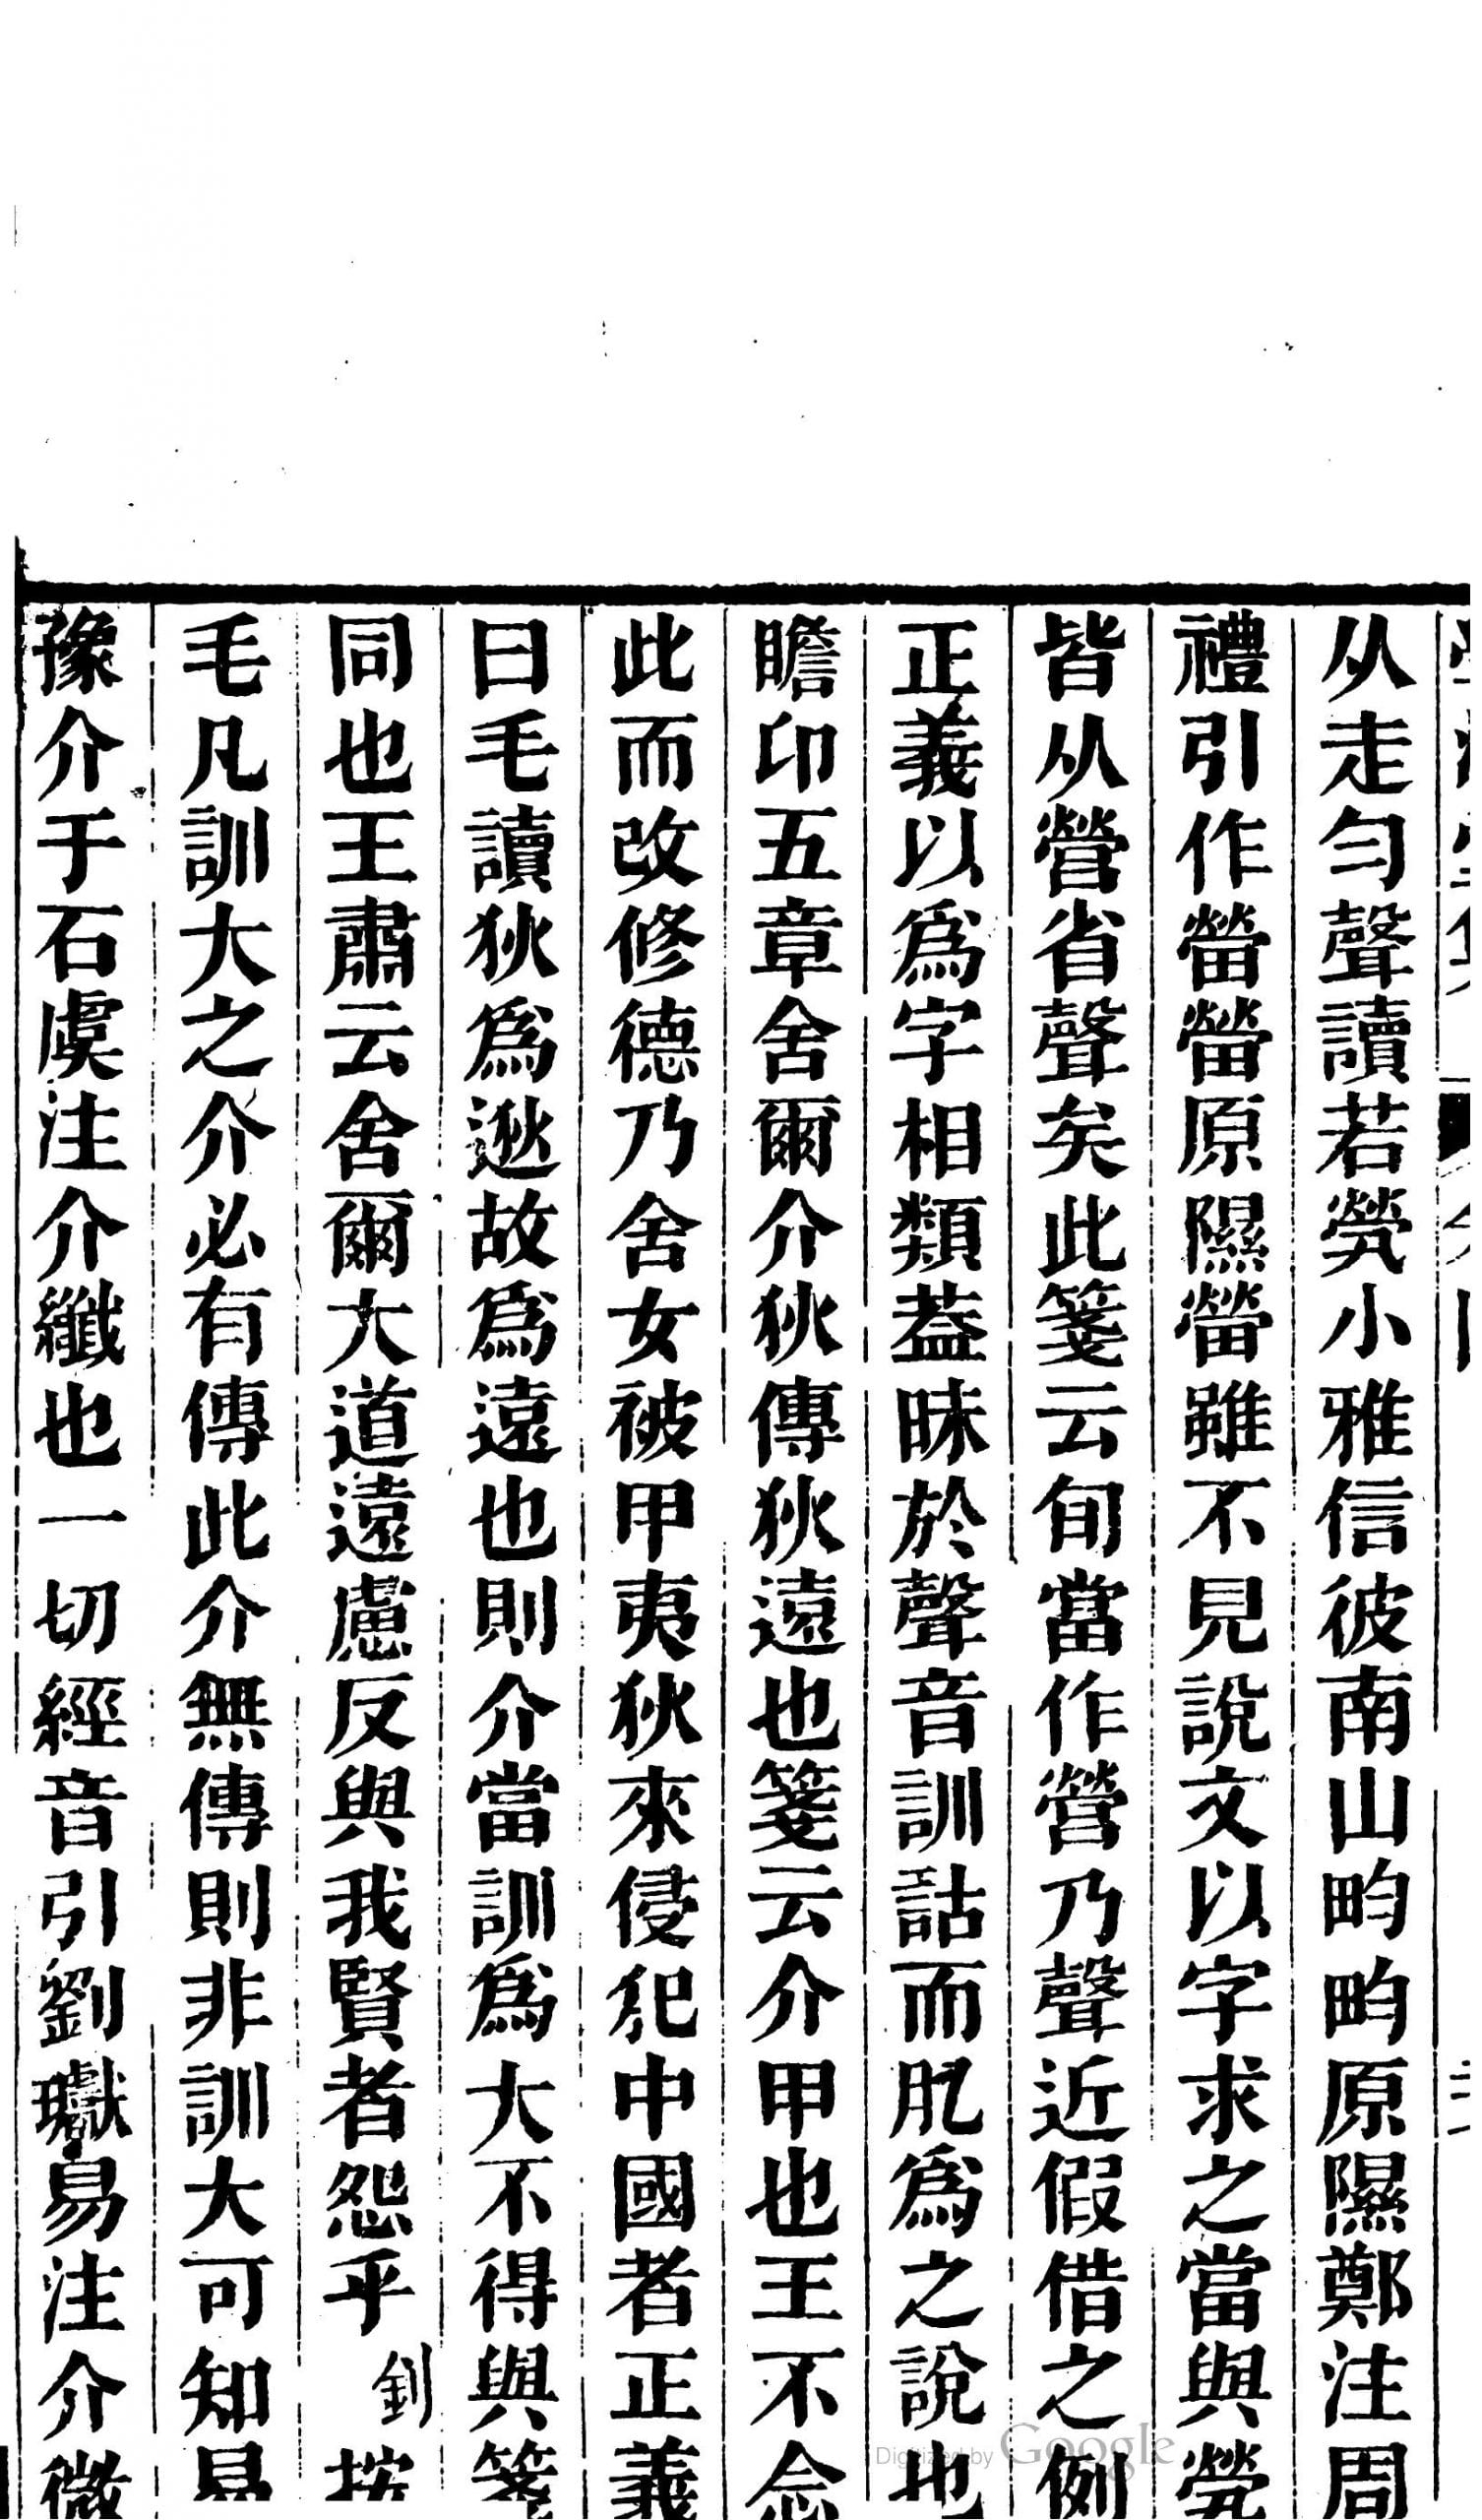 从走勻聲讀若煢小雅信彼南山畇畇原隰鄭注周
禮引作䓨䓨原隰䓨雖不見說文以字求之當與煢
皆从營省聲矣此箋云旬當作營乃聲近假借之例
正義以爲字相類葢昧於聲音訓詁而肊爲之說也
瞻卬五章舍爾介狄傳狄遠也箋云介甲也王不念
此而改修德乃舍女被甲夷狄來侵犯中國者正義
曰毛讀狄爲逖故爲遠也則介當訓爲大不得與箋
同也王肅云舍爾大道遠慮反與我賢者怨乎釗按
毛凡訓大之介必有傳此介無傳則非訓大可知易
豫介于石虞注介纖也一切經音引劉瓛易注介微
Digitized by Google